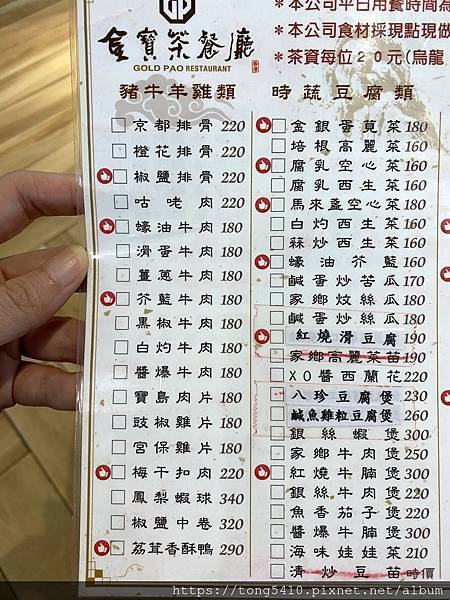 金寶茶餐廳
GOLD PAO RESTAURANT
＊本公司平日用餐時間為
＊本公司食材採現點現做
＊茶資每位20元(烏龍
豬牛羊雞類
京都排骨 220
橙花排骨 220
椒鹽排骨 220
咕咾肉 220
蠔油牛肉 180
滑蛋牛肉 180
薑蔥牛肉 180
芥藍牛肉 180
黑椒牛肉 180
白灼牛肉 180
醬爆牛肉 180
寶島肉片 180
豉椒雞片 180
宮保雞片 180
梅干扣肉 220
鳳梨蝦球 340
椒鹽中卷 320
荔茸香酥鴨 290
時蔬豆腐類
金銀蛋莧菜 180
培根高麗菜 160
腐乳空心菜 160
腐乳西生菜 160
馬來盞空心菜 180
白灼西生菜 160
蒜炒西生菜 160
蠔油芥藍 160
鹹蛋炒苦瓜 170
家鄉炆絲瓜 180
鹹蛋炒絲瓜 180
紅燒滑豆腐 190
家鄉高麗菜苗 190
XO醬西蘭花 220
八珍豆腐煲 230
鹹魚雞粒豆腐煲 260
銀絲蝦煲 300
家鄉牛肉煲 250
紅燒牛腩煲 300
銀絲牛肉煲 220
魚香茄子煲 220
醬爆牛腩煲 300
海味娃娃菜 210
清炒豆苗 時價
https://tong5410.pixnet.net/album